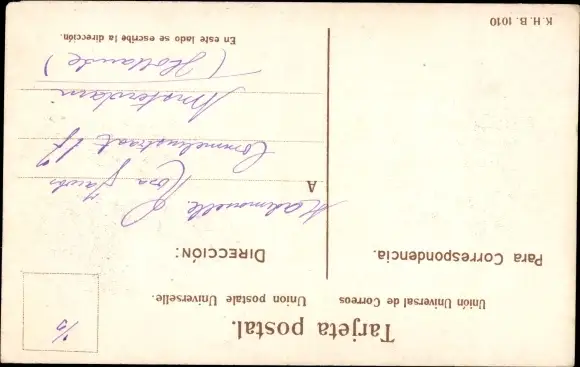 Tarjeta postal.
Unión Universal de Correos Union postale Universelle.
Para Correspondencia.
DIRECCIÓN:
Mademoiselle
A Rosa Jacobs
Commelinstraat 17
Amsterdam
(Hollande)
En este lado se escribe la dirección.
K. H. B. 1010